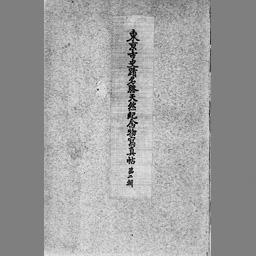 東京市史蹟名勝天然紀念物寫真帖 第二輯